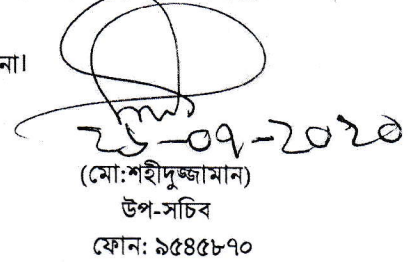 না।
২৬-০৭-২০২০
(মো:শহীদুজ্জামান)
উপ-সচিব
ফোন: ৯৫৪৫৮৭০